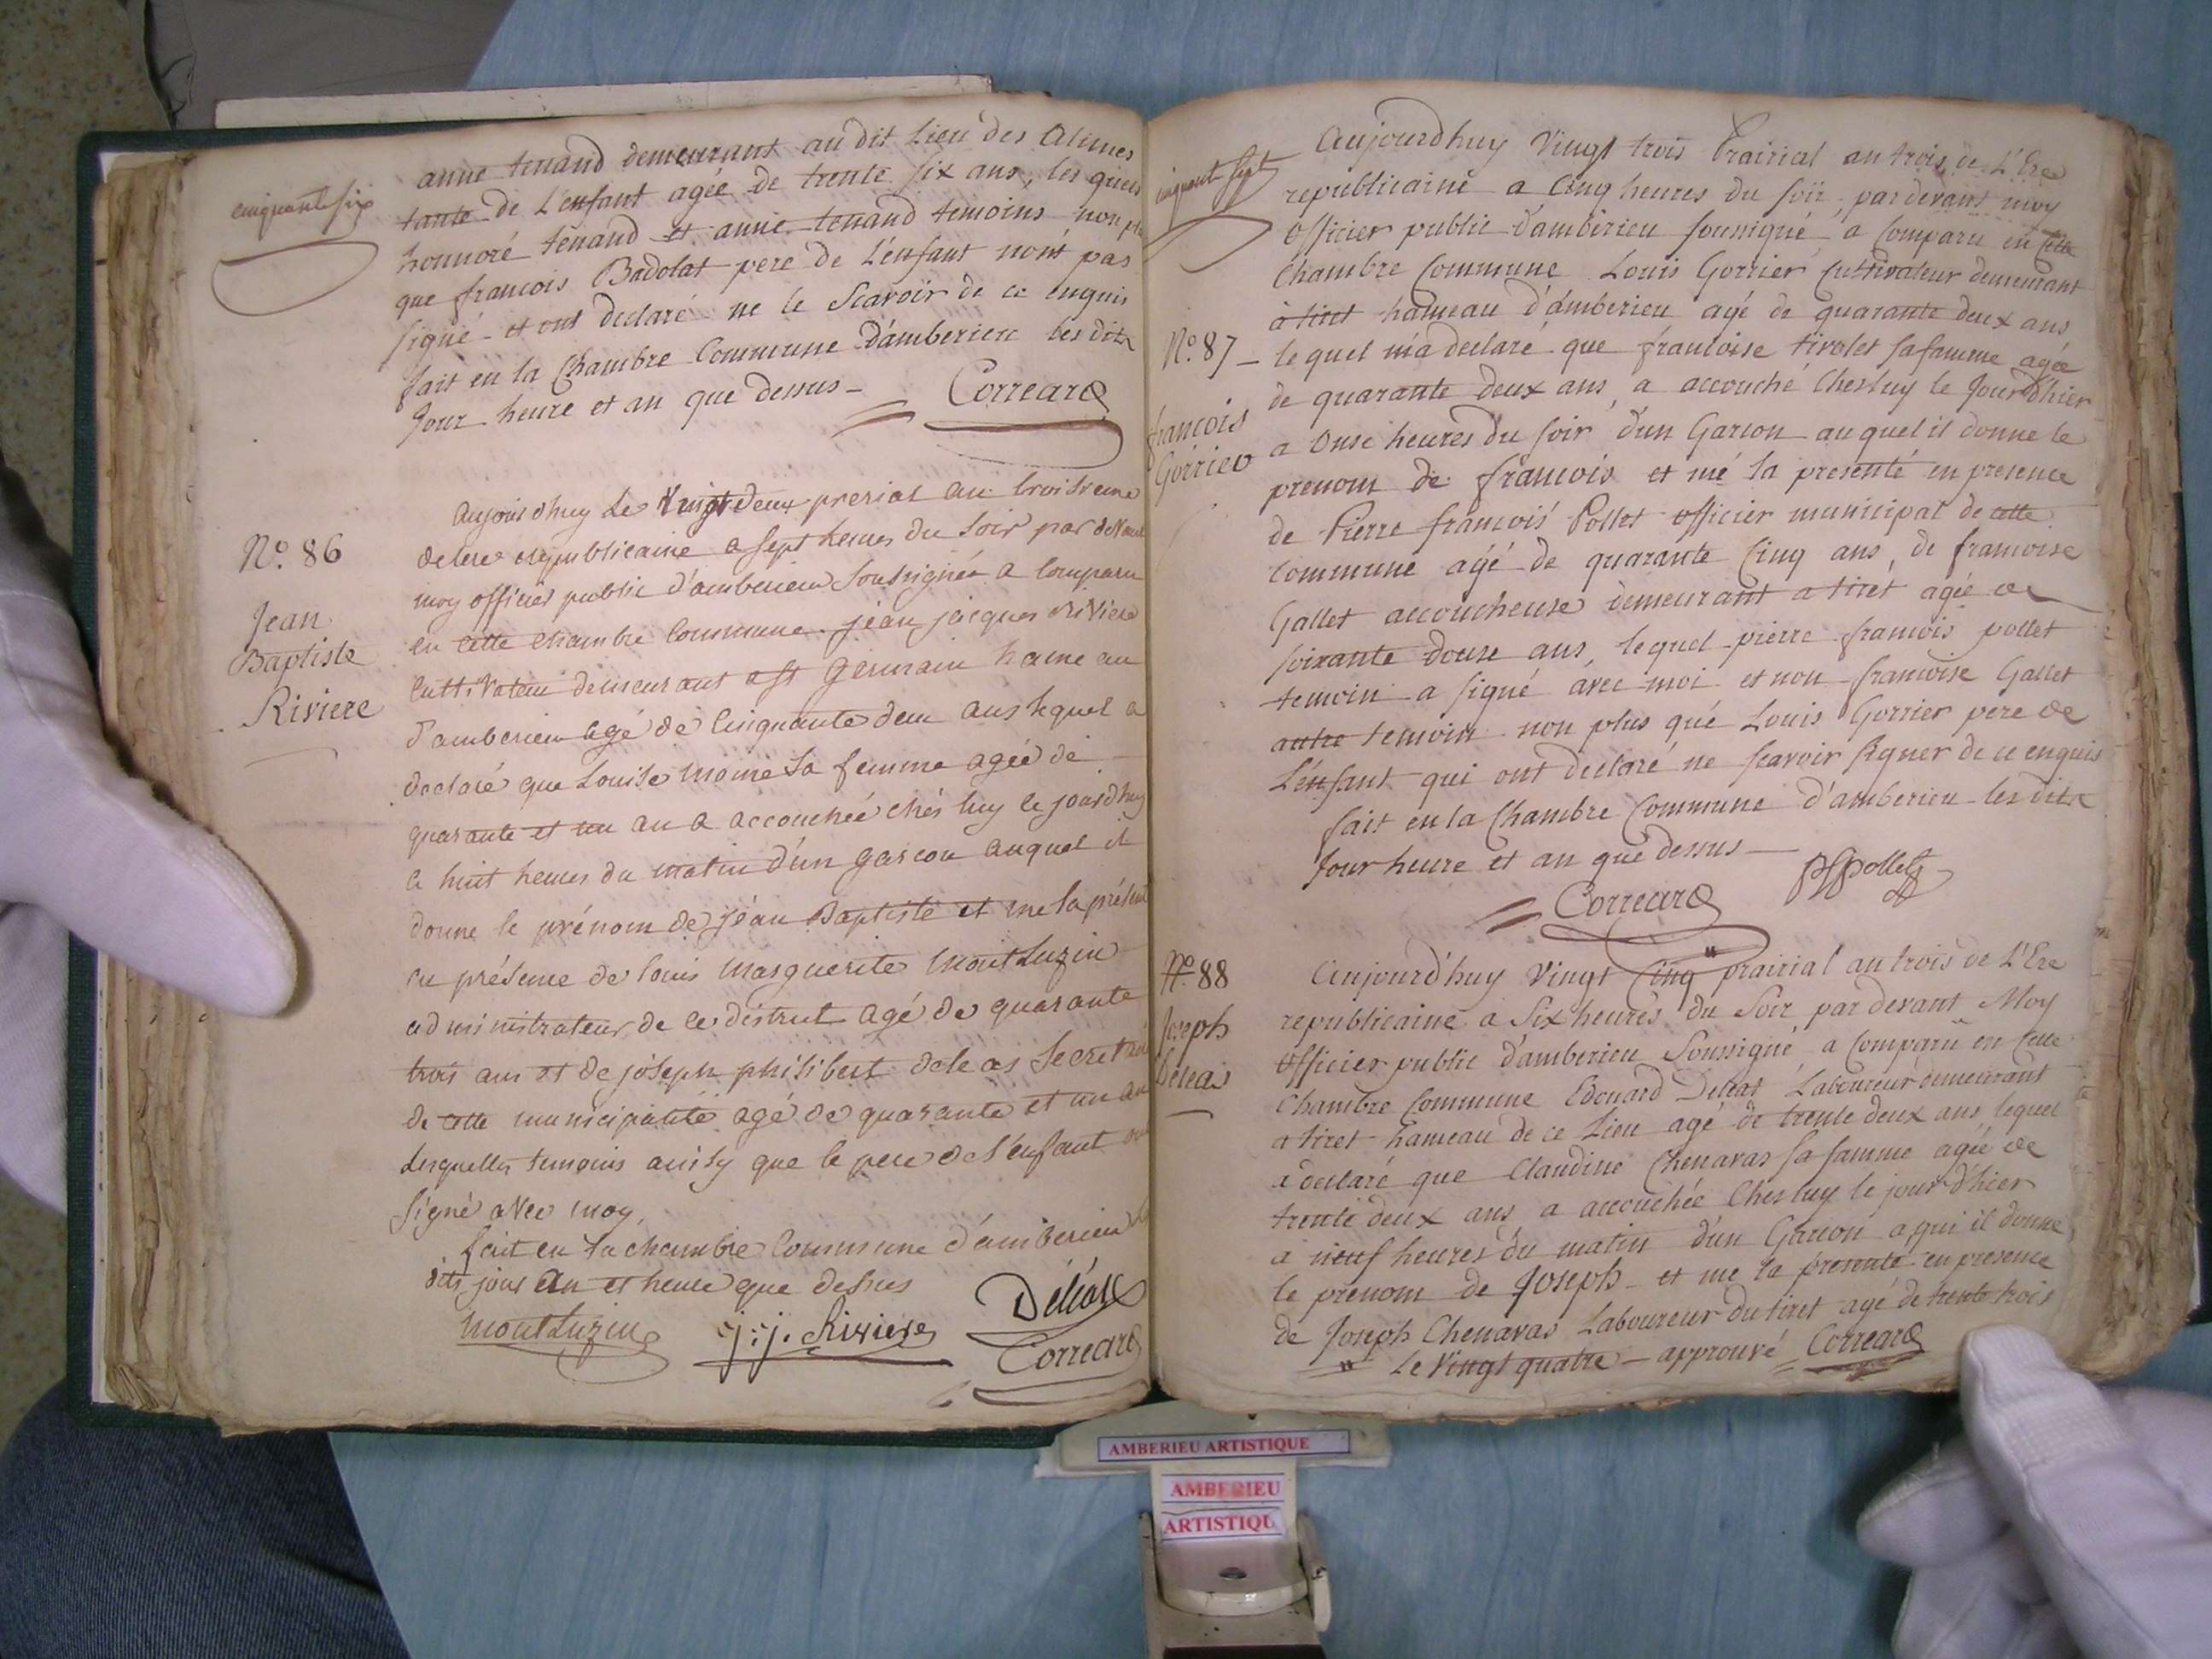 cinquante six
anne tenand demeurant au dit Lieu des Alimes
tante de L'enfant agée de trente six ans, les quels
honnoré tenand et anne tenand temoins non plus
que francois Badolat pere de L'enfant n'ont pas
signé et ont declaré ne le Scavoir de ce enquis
fait en la Chambre Commune d'amberieu les dits
Jour heure et an que dessus
Correard
No. 86
Jean
Baptiste
Riviere
aujourdhuy le Vingt deux prerial an troisieme
de lere republicaine a sept heures du Soir par devant
moy officier public d'amberieu Soussigné a comparu
en cette chambre Commune jean jacques Riviere
Cultivateur demeurant a st Germain hame au
d'amberieu agé de Cinquante deux ans lequel a
declaré que Louise moine Sa femme agée de
quarante et un an a accouchée chés luy le jourdhuy
a huit heures du matin d'un garcon auquel il
donne le prénom de jéan Baptiste et me la présenté
en présence de louis Marguerite MontLuzin
administrateur de ce district agé de quarante
trois ans et de joseph philibert deleas Secretaire
de cette municipalité agé de quarante et un an
Lesquelles temoins ainsy que le pere de l'enfant ont
Signé avec moy,
fait en la chambre Commune d'amberieu
dits jour an et heure que dessus
MontLuzin
j: j. Riviere
Déléas
Correard
cinquant sept
Aujourdhuy Vingt trois Prairial an trois de L'Ere
republicaine a Cinq heures du soir, par devant moy
Officier public d'amberieu soussigné, a Comparu en Cette
Chambre Commune Louis Gorrier Cultivateur demeurant
à tiret hameau d'amberieu agé de quarante deux ans
No. 87
francois
Gorrier
lequel m'a declaré que francoise tirolet sa famme agée
de quarante deux ans, a accouché Ches luy le Jour d'hier
a Onse heures du soir d'un Garcon auquel il donne le
prenom de francois et mé la presenté en presence
de Pierre francois Pollet officier municipal de cette
Commune agé de quarante Cinq ans, de francoise
Gallet accoucheuse demeurant a tiret agée de
soixante douse ans, lequel pierre francois pollet
temoin a signé avec moi et non francoise Gallet
autre temoin non plus que Louis Gorrier pere de
L'enfant qui ont declaré ne scavoir signer de ce enquis
fait en la Chambre Commune d'amberieu les dits
Jour heure et an que dessus
Correard
PFPollet
No. 88
Joseph
Déleas
Aujourd'huy Vingt Cinq " prairial an trois de L'Ere
republicaine a Six heures du Soir par devant Moy
Officier public d'amberieu Soussigné a Comparu en Cette
Chambre Commune Edouard Deleas Laboureur demeurant
a tiret hameau de ce Lieu agé de trente deux ans, lequel
a declaré que Claudine Chenavas sa famme agée de
trente deux ans, a accouchée Ches luy le jour d'hier
a neuf heures du matin d'un Garcon a qui il donne
le prenom de Joseph et me la presenté en presence
de Joseph Chenavas Laboureur du tiret agé de trente trois
" Le Vingt quatre - approuvé Correard
AMBERIEU ARTISTIQUE
AMBERIEU
ARTISTIQU